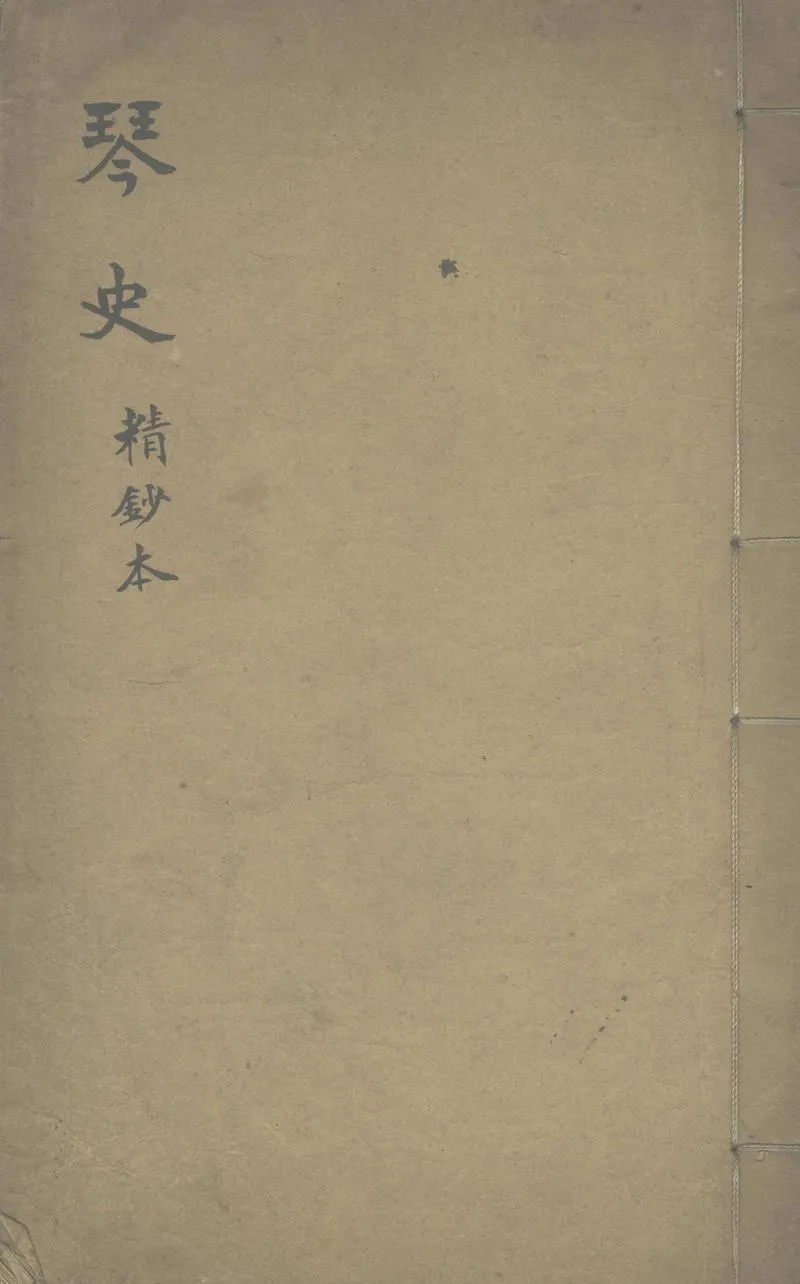 琴史
精鈔本